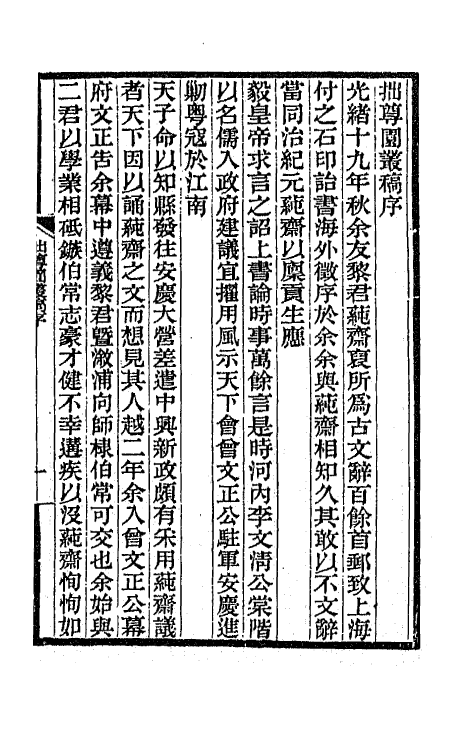 拙尊園叢稿序
光緒十九年秋余友黎君蒓齋裒所爲古文辭百餘首郵致上海
付之石印詒書海外徵序於余余與蒓齋相知久其敢以不文辭
當同治紀元蒓齋以廩貢生應
毅皇帝求言之詔上書論時事萬餘言是時河內李文淸公棠階
以名儒入政府建議宜擢用風示天下會曾文正公駐軍安慶進
剿粤寇於江南
天子命以知縣發往安慶大營差遣中興新政頗有釆用蒓齋議
者天下因以誦蒓齋之文而想見其人越二年余入曾文正公幕
府文正告余幕中遵義黎君曁漵浦向師棣伯常可交也余始與
二君以學業相砥鏃伯常志豪才健不幸遘疾以沒蒓齋恂恂如
拙尊園叢稿序
一